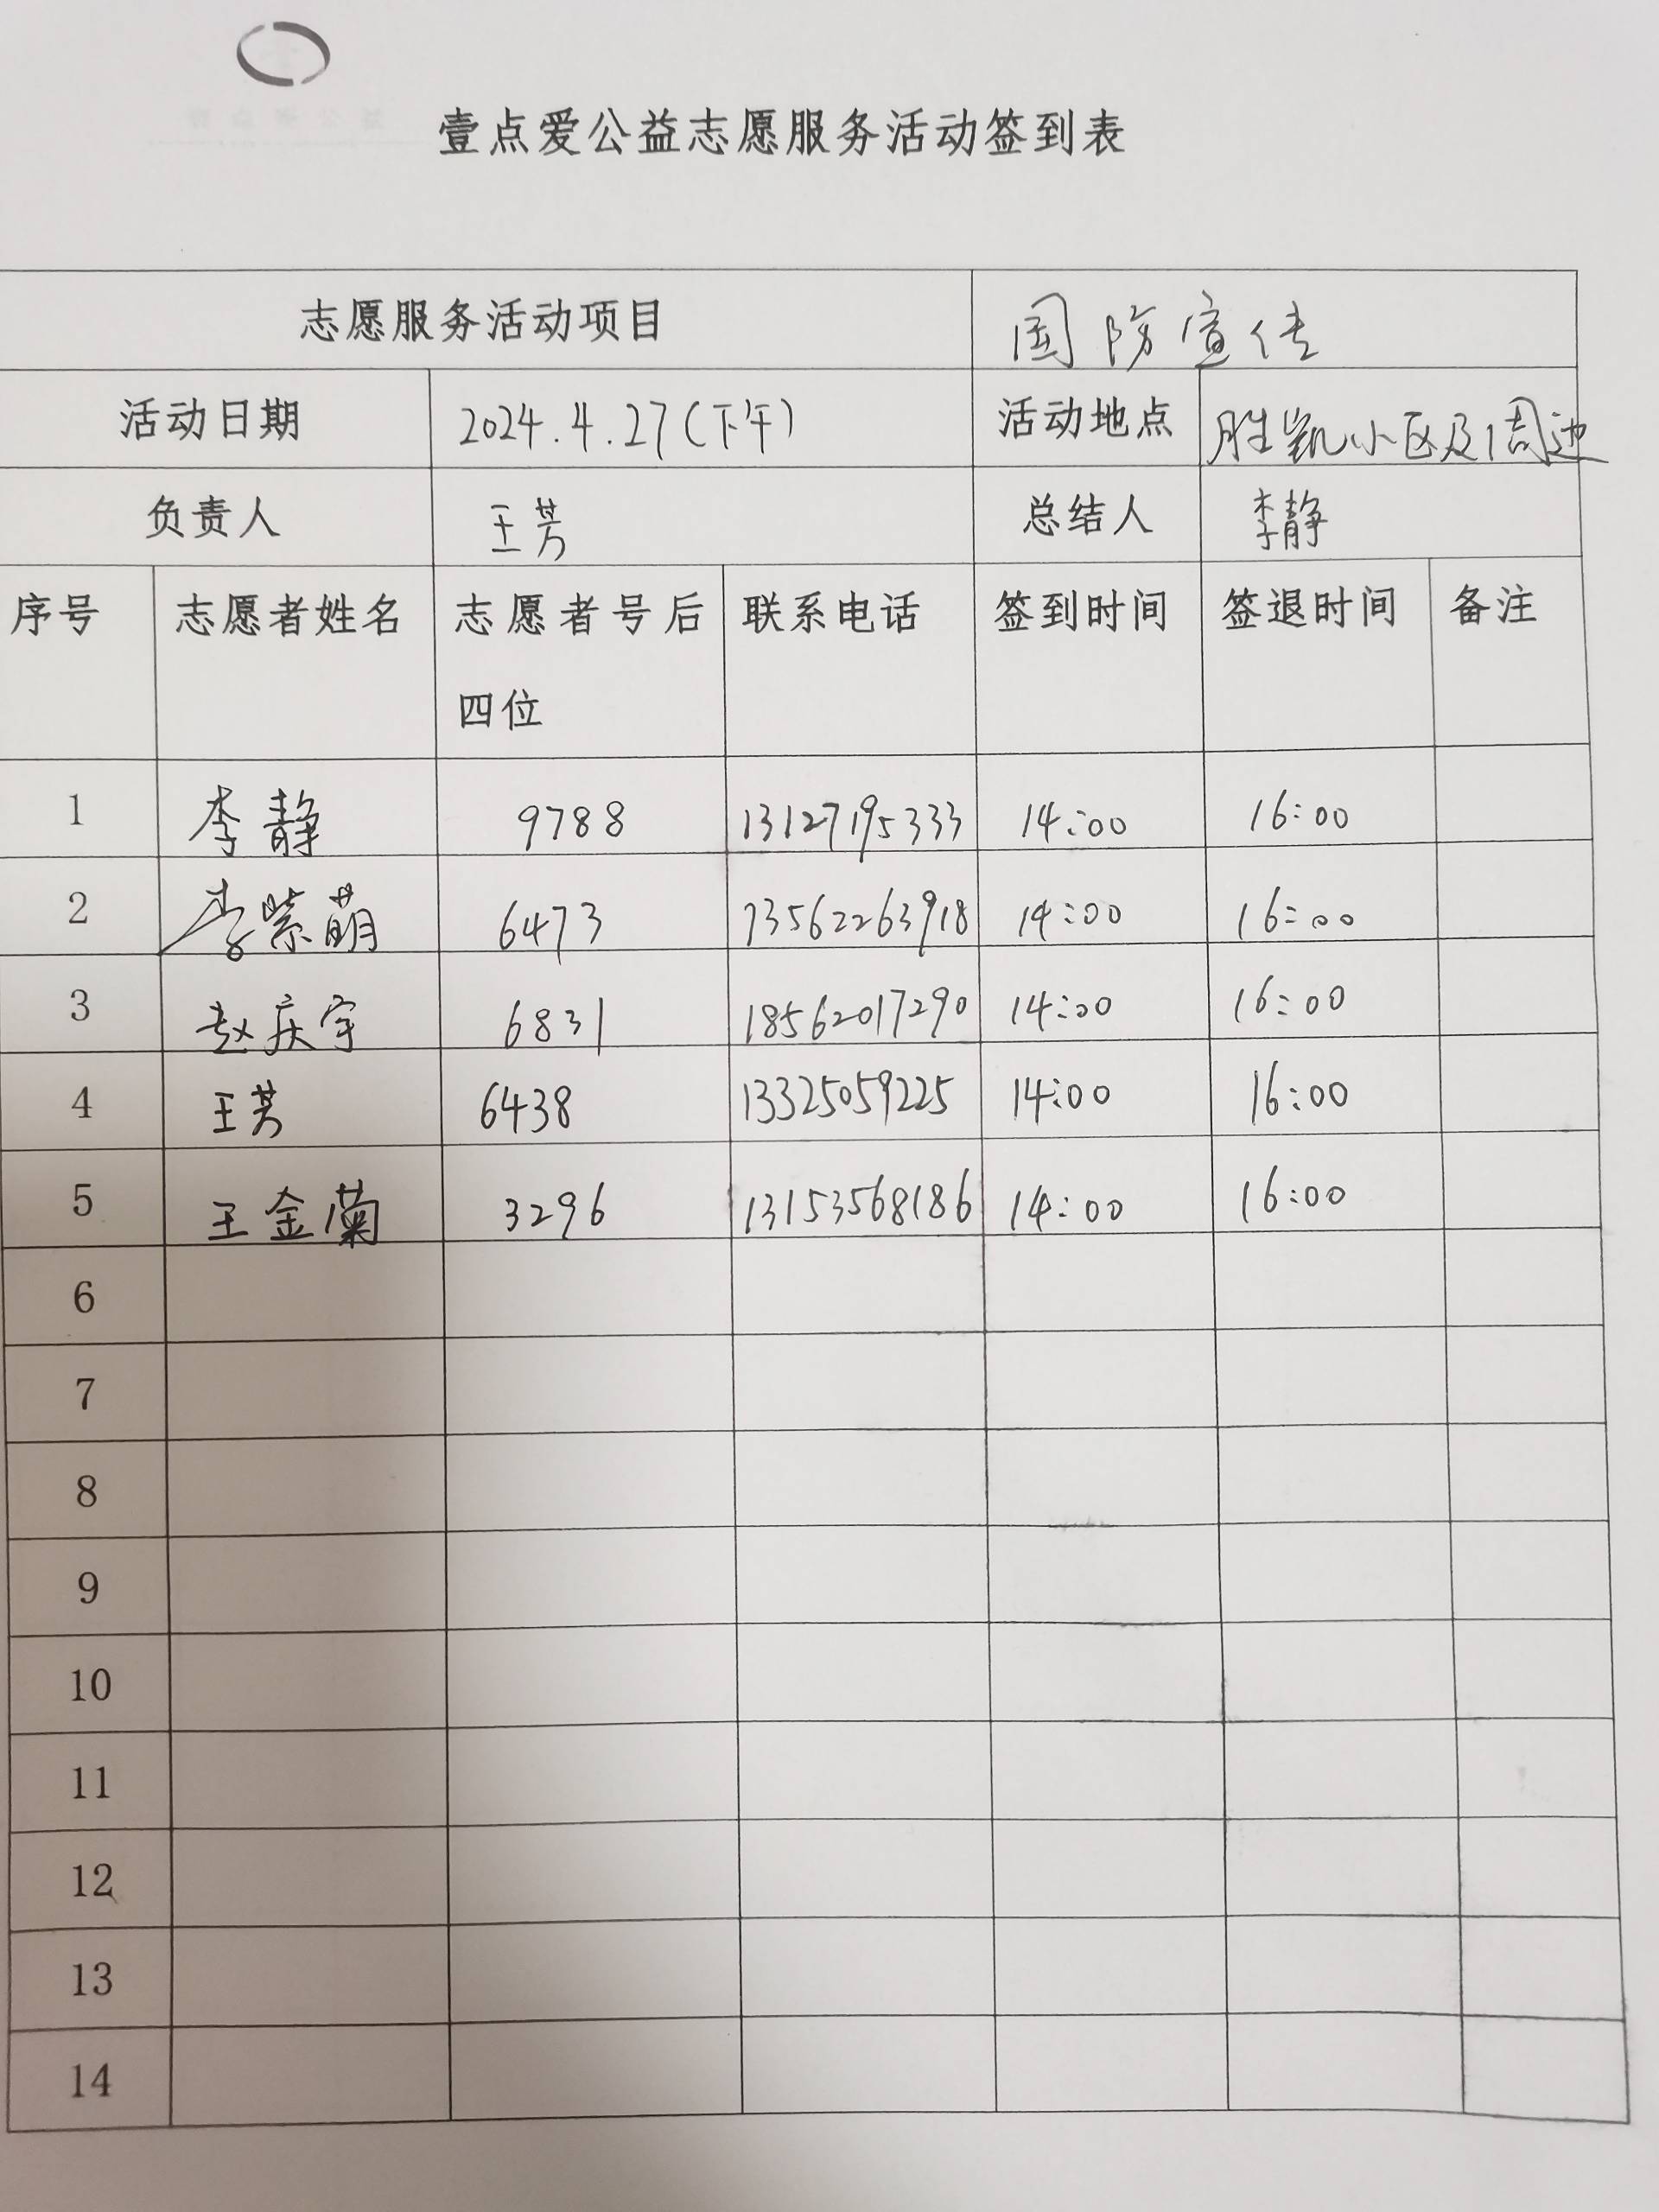 壹点爱公益志愿服务活动签到表
志愿服务活动项目 国防宣传
活动日期 2024.4.27(下午) 活动地点 胜凯小区及周边
负责人 王芳 总结人 李静
序号 志愿者姓名 志愿者号后 联系电话 签到时间 签退时间 备注
四位
1 李静 9788 13127195333 14:00 16:00
2 李紫萌 6473 13562263918 14:00 16:00
3 赵庆宇 6831 18562017290 14:00 16:00
4 王芳 6438 13325059225 14:00 16:00
5 王金菊 3296 13153568186 14:00 16:00
6
7
8
9
10
11
12
13
14